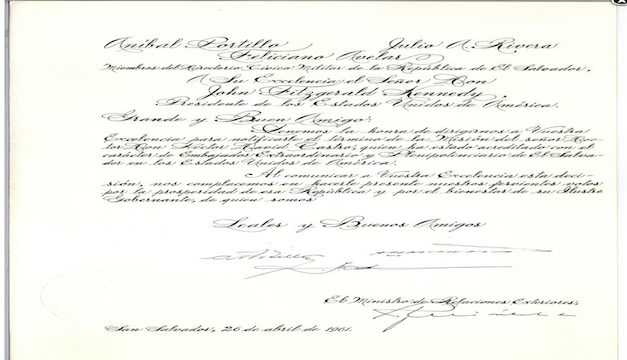 Aníbal Portillo Julio A. Rivera
Feliciano Avelar
Miembros del Directorio Cívico Militar de la República de El Salvador,
A Su Excelencia el Señor Don
John Fitzgerald Kennedy,
Presidente de los Estados Unidos de América.
Grande y Buen Amigo:
Tenemos la honra de dirigirnos a Vuestra
Excelencia para notificarle el término de la Misión del señor Doc-
tor Don Héctor David Castro, quien ha estado acreditado con el
carácter de Embajador Extraordinario y Plenipotenciario de El Salva-
dor en los Estados Unidos de América.
Al comunicar a Vuestra Excelencia esta deci-
sión, nos complacemos en hacerle presente nuestros fervientes votos
por la prosperidad de esa República y por el bienestar de su Ilustre
Gobernante, de quien somos
Leales y Buenos Amigos
El Ministro de Relaciones Exteriores,
San Salvador, 26 de abril de 1961.